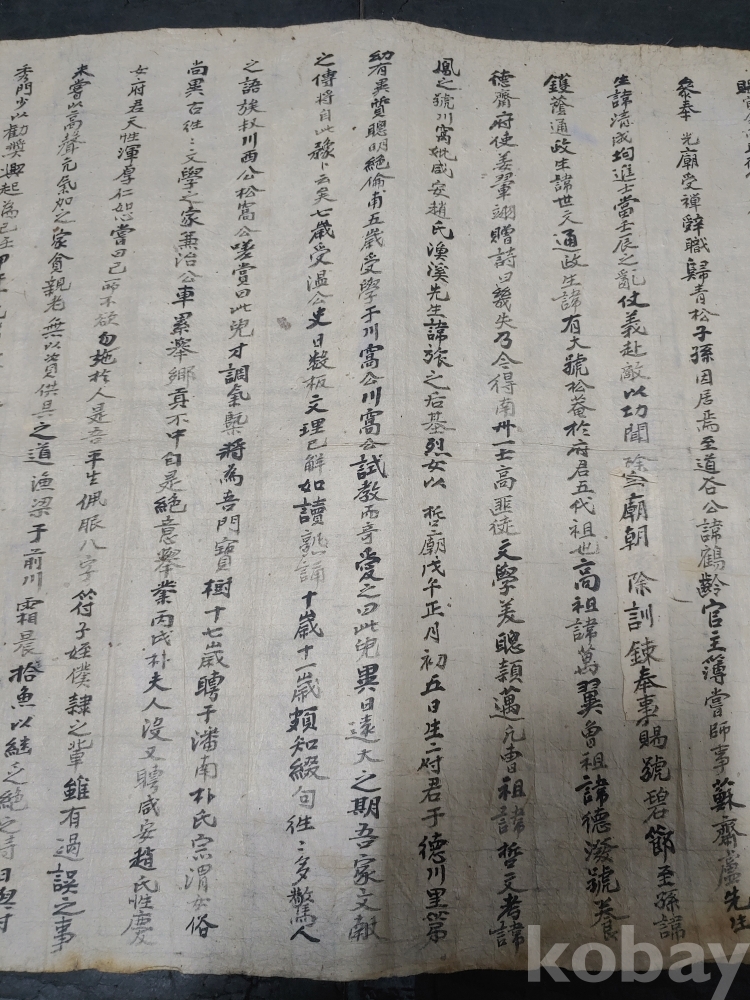 參奉 光廟受禪辭職歸青松子孫因居焉至道谷公諱鶴齡官主簿嘗師事蘇齋盧先生
生諱清成均進士當壬辰之亂仗義赴敵以功聞除 廟朝 除訓鍊奉事賜號碧節至孫諱
護蔭通政生諱世文通政生諱有大號松菴於府君五代祖也高祖諱萬翼曾祖諱德潑號養
德齋府使姜翬翊贈詩曰幾失乃今得南州一士高匪徒文學美聰穎邁凡曹祖諱哲文考諱
鳳之號川窩妣咸安趙氏漁溪先生諱旅之后基烈女以 哲廟戊午正月初五日生府君于德川里第
幼有異質聰明絶倫甫五歲受學于川窩公川窩公試教而奇愛之曰此兒異日遠大之期吾家文獻
之傳將自此豫卜云矣七歲受溫公史日數板文理已解如讀熟誦十歲十一歲頗知綴句徃〻多驚人
之語族叔川西公松窩公嗟賞曰此兒才調氣槩將為吾門寶樹十七歲聘于潘南朴氏宗渭女俗
尚異古徃〻文學之家兼治公車累擧鄕貢不中自是絶意擧業丙戌朴夫人沒又聘咸安趙氏性慶
女府君天性渾厚仁恕嘗曰己所不欲勿施於人是吾平生佩服八字符子姪僕隸之輩雖有過誤之事
未嘗以高聲元氣加之家貧親老無以資供具之道漁梁于前川霜晨拾魚以繼之絶之時日與村
秀門少以勸奬興起為己任